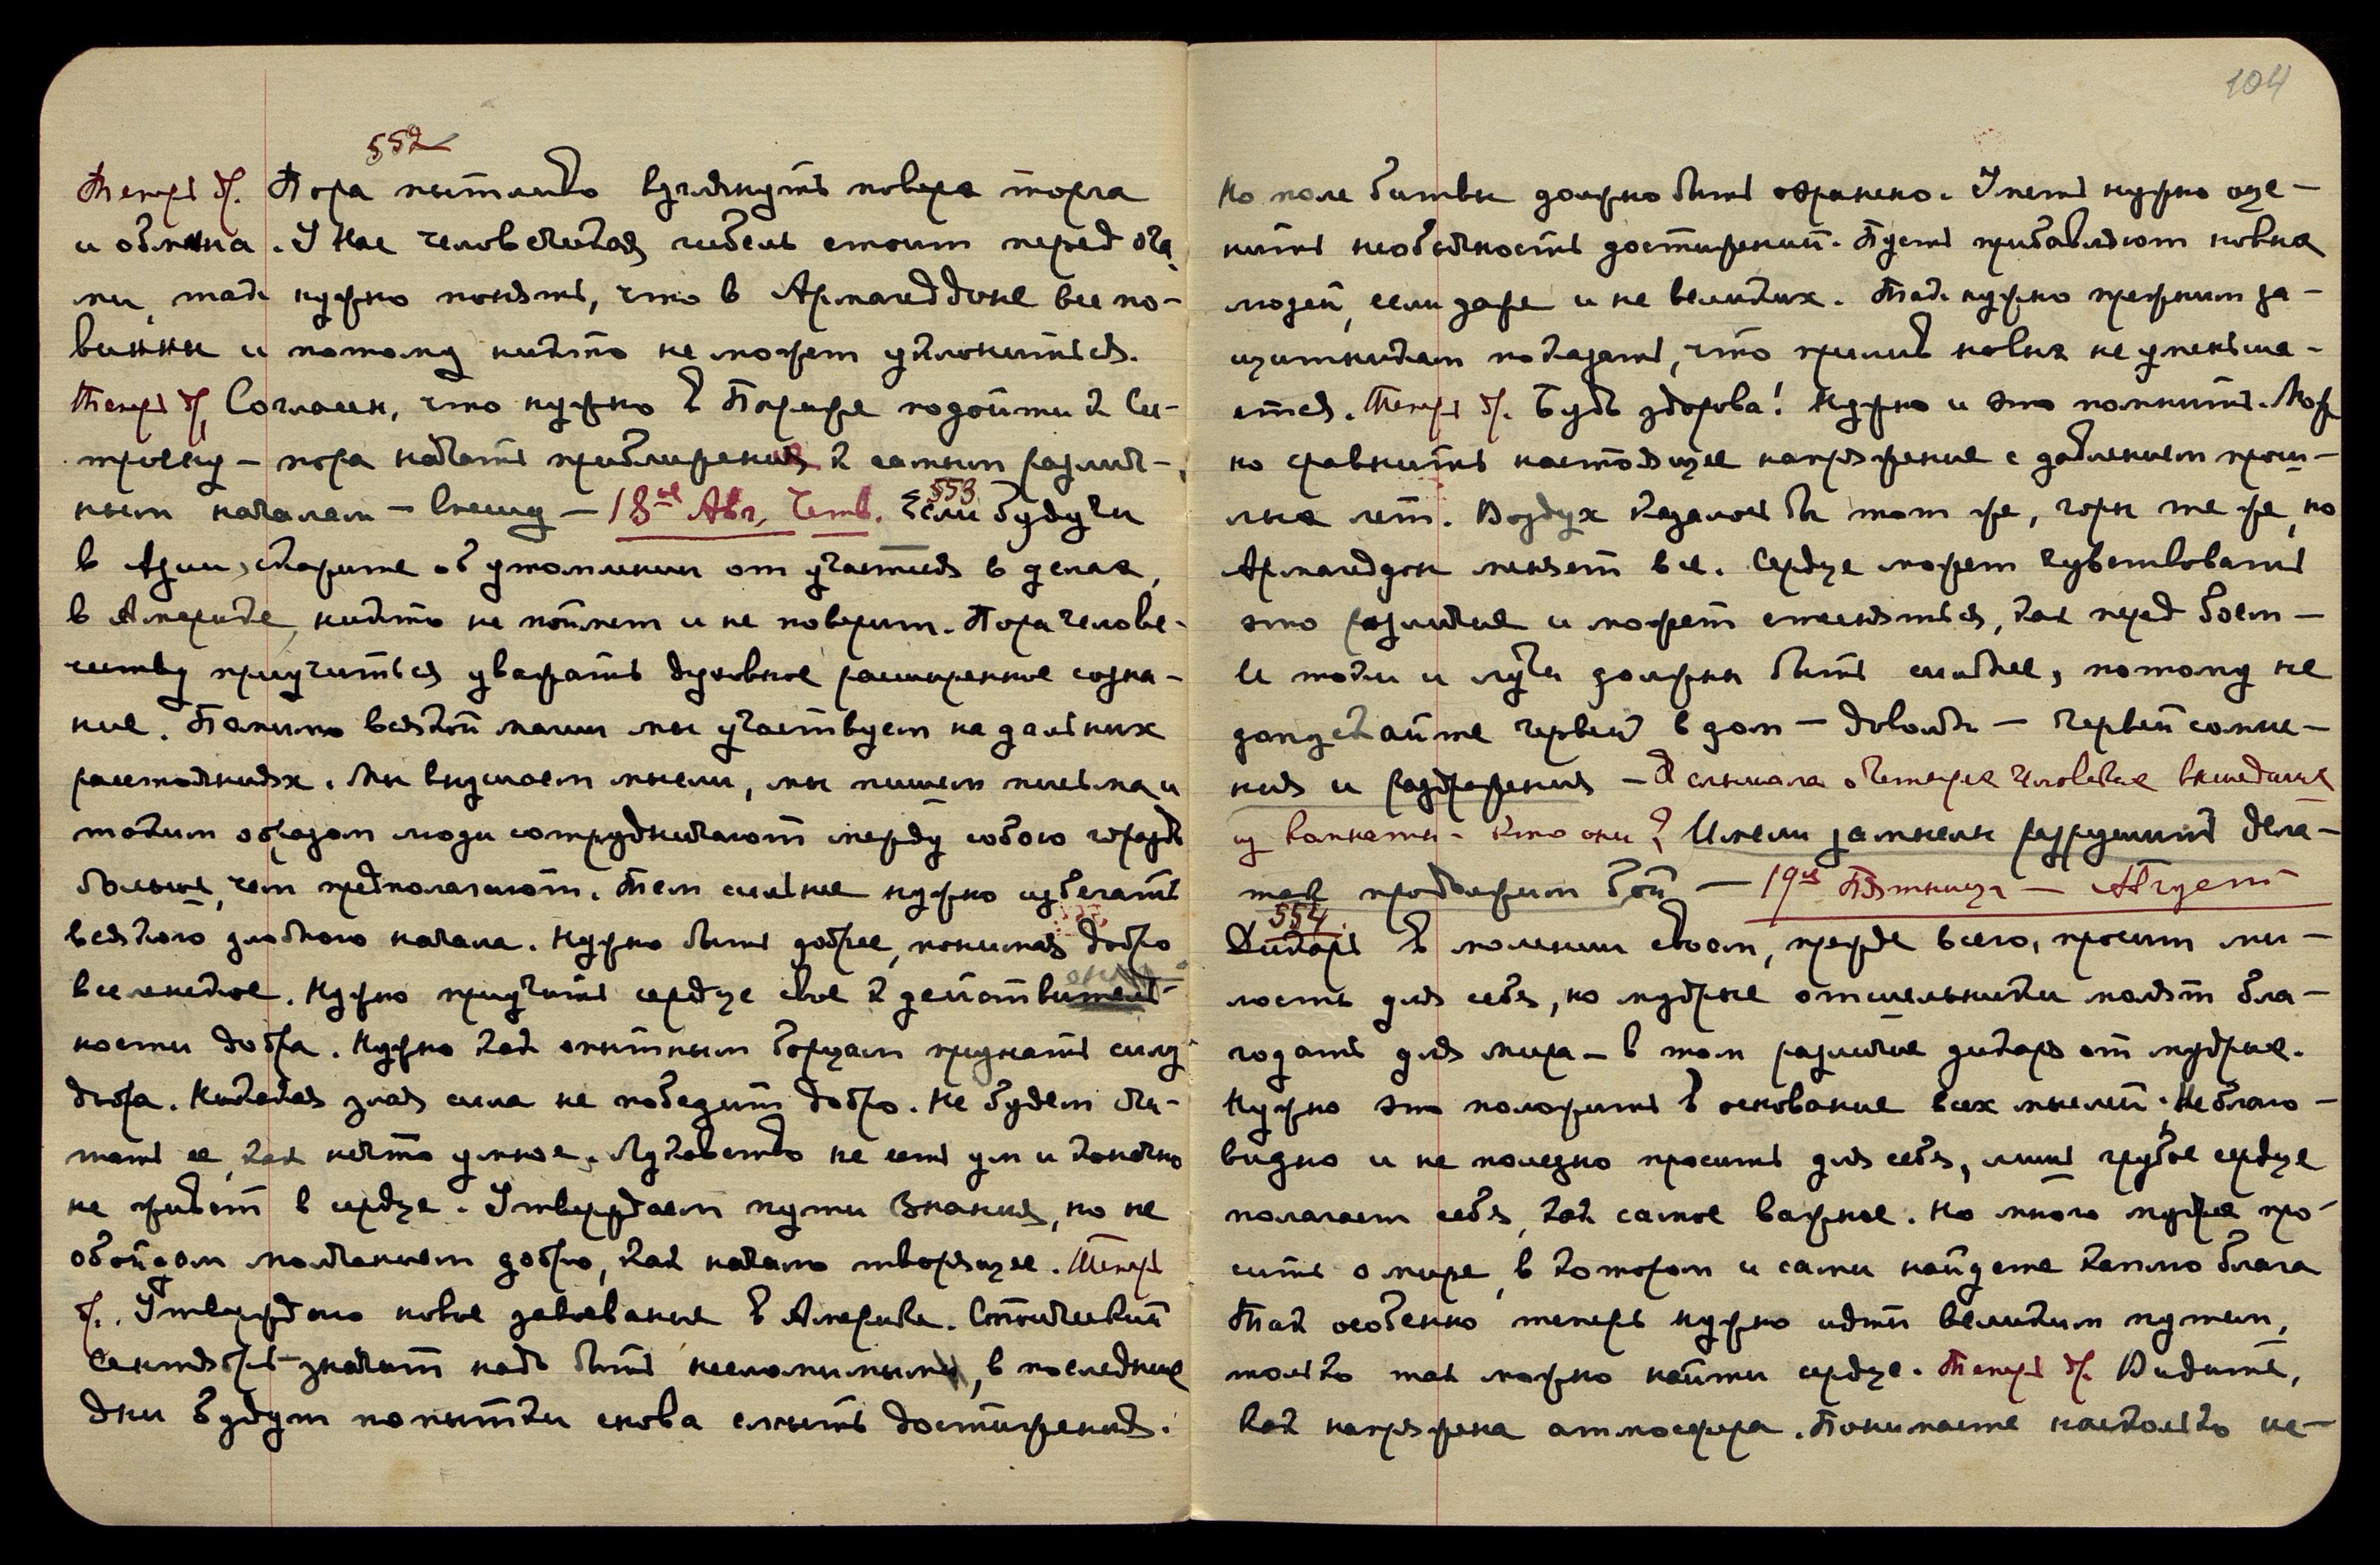 104
552
Теперь др. Пора пытливо взглянуть поверх торга
и обмана. У Нас человеческая гибель стоит перед оча
ми, так нужно понять, что в Армагеддоне все по-
винны и потому никто не может уклониться.
Теперь др. Согласен, что нужно в Париже подойти к
пора начать приближения к самым различ-
ным началам – вмещу – 18ое Авг, Четв. 553 Если будучи
в Азии, скажите об утомлении от участия в делах,
в Америке, никто не поймет и не поверит. Пора челове-
честву приучиться уважать духовное расширенное созна-
ние. Помимо всякой магии мы участвуем на дальних
расстояниях. Мы высылаем мысли, мы пишем письма и
таким образом люди сотрудничают между собою гораздо
больше, чем предполагают. Тем сильнее нужно избегать
всякого злобного начала. Нужно быть добрее, понимая добро
вселенское. Нужно приучить сердце свое к действитель-
ности добра. Нужно как опытным борцам признать силу
добра. Никакая злая сила не победит добро. Не будем счи-
тать ее, как нечто умное. Лукавство не есть ум и конечно
не живет в сердце. Утверждаем пути Знания, но не
обойдем молчанием добро, как начало творящее. Теперь
др. Утверждаю новое завоевание в Америке.
Сентябрь – значит надо быть несломимыми, в последние
дни будут попытки снова смыть достижения.
Но поле битвы должно быть охранено. Уметь нужно оце-
нить необычность достижений. Пусть прибавляют новых
людей, если даже и не великих. Так нужно прежним за-
щитникам показать, что прилив новых не уменьша-
ется. Теперь др. Будь здорова! Нужно и это помнить. Мож
но сравнить настоящее напряжение с давлением прош-
лых лет. Воздух казалось бы тот же, горы те же, но
Армагеддон меняет все. Сердце может чувствовать
это различие и может стесняться, как перед боем –
И токи и лучи должны быть сильнее, потому не
допускайте червей в дом – довольно – червей сомне-
ния и раздражения – Я слышала о четырех человеках вышедших
из комнаты – кто они? Имели замыслы разрушить дела –
так продолжим бой – 19ое Пятница – Август
554
Дикарь в молении своем, прежде всего, просит ми-
лость для себя, но мудрые отшельники молят бла-
годать для мира – в том различие дикаря от мудрых.
Нужно это положить в основание всех мыслей. Не благо-
видно и не полезно просить для себя, лишь грубое сердце
полагает себя, как самое важное. Но много мудрее про-
сить о мире, в котором и сами найдете каплю блага
Так особенно теперь нужно идти великим путем,
только так можно найти сердце. Теперь др. Видите,
как напряжена атмосфера. Понимаете насколько не-